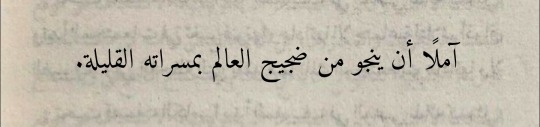 آملًا أن ينجو من ضجيج العالم بمسراته القليلة.